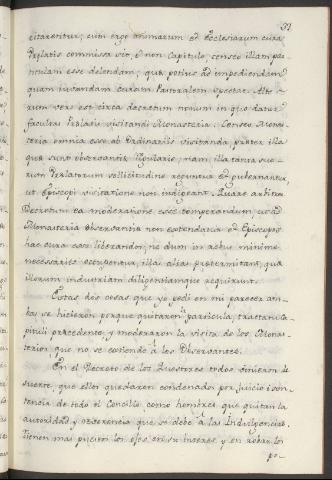 31
citarentur; cum ergo animarum et Ecclesiarum cura
Prælatis commissa sit, et non Capitulo, censeo illam par-
ticulam esse delendam, quæ potius ad impediendam
quam iuvandam curam Pastoralem spectat. Alte-
rum vero est circa decretum nonum in quo datur
facultas Prælatis visitandi Monasteria. Censeo Monas-
teria omnia esse ab Ordinariis visitanda, præter illa
quæ sunt observantiæ Regularis, nam illa tanta suo-
rum Prælatorum sollicitudine reguntur et gubernantur,
ut Episcopi visitatione non indigeant. Quare arbitror
Decretum ea moderatione esse temperandum, ut ad
Monasteria Observantiæ non extendatur et Episcopos
hac cura esse liberandos, ne dum in rebus minime
necessariis occupentur, illa alia prætermittant, quæ
illorum industriam diligentiamque requirunt.
Estas dos cosas que yo pedi en mi parecer am-
bas se hicieron porque quitaron la particula, tractatu Ca-
pituli præcedente, y moderaron la visita de los Monas-
terios que no se extiende á los Observantes.
En el Decreto de los Questores todos vinieron de
suerte, que ellos quedaron condenados por juicio i sen-
tencia de todo el Concilio, como hombres que quitan la
autoridad y reverencia que se debe á las Indulgencias,
tienen mas puestos los ojos en su interes y en robar los
po-